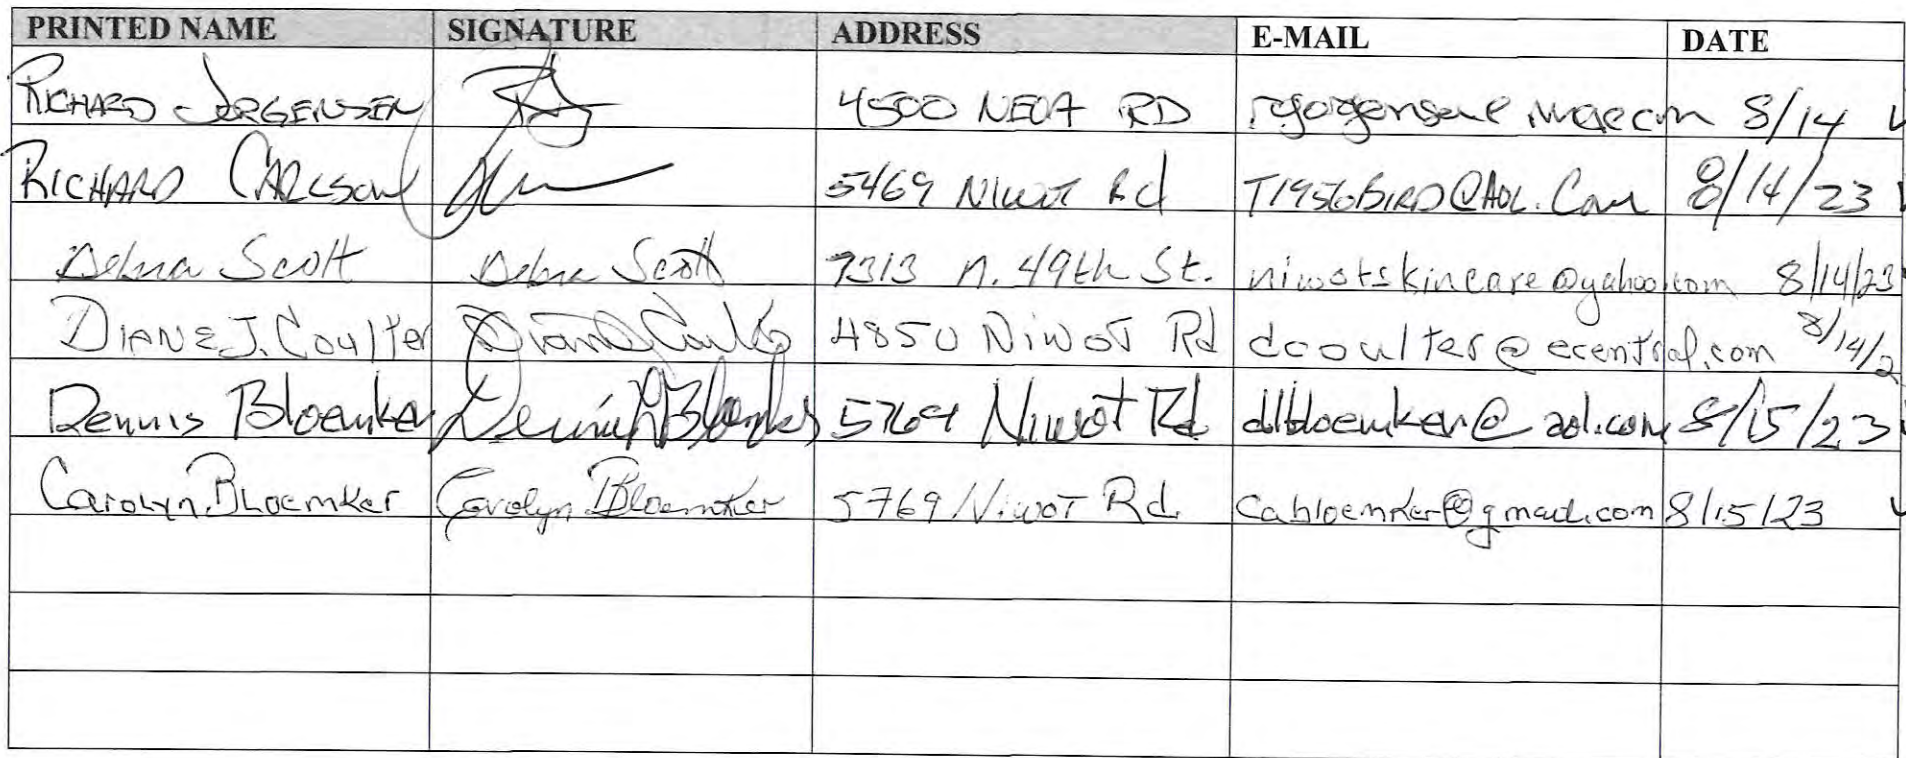 PRINTED NAME SIGNATURE ADDRESS E-MAIL DATE
RICHARD JORGENSEN 4500 NEVA RD 8/14
RICHARD CARLSON 5469 Niwot Rd T1956BIRD@AOL.Com 8/14/23
Debra Scott Debra Scott 7313 n. 49th St. niwotskincare@yahoo.com 8/14/23
DIANE J. Coulter Diane Coulter 4850 NiwoT Rd dcoulter@ecentral.com 8/14/2
Dennis Bloemker 5769 Niwot Rd dlbloemker@aol.com 8/15/23
Carolyn Bloemker Carolyn Bloemker 5769 Niwot Rd. Cabloemker@gmail.com 8/15/23